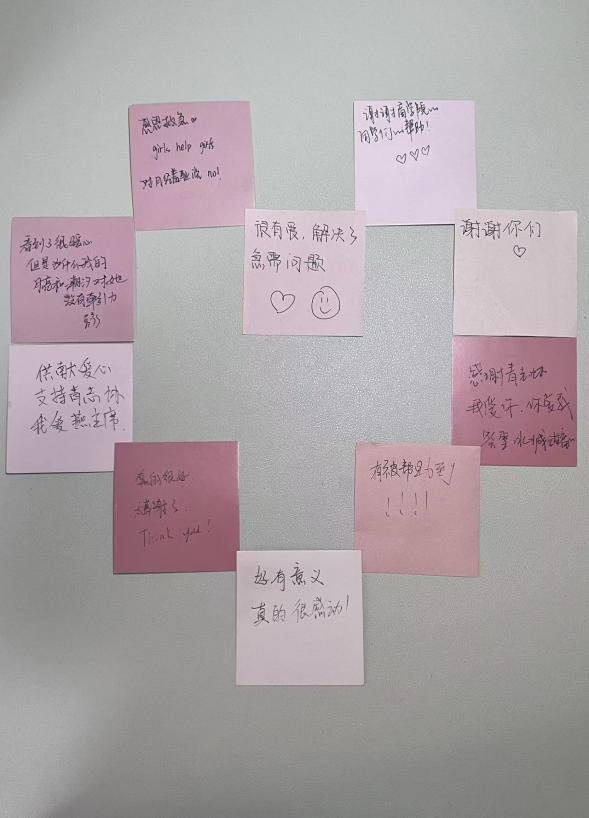 感恩救急
girls help girls
对月经羞耻说 no!
谢谢商学院
同学们 帮助!
很有爱，解决了
急需问题
看到了很暖心
但是为什么我的
月亮和潮汐对她
没有牵引力
谢谢你们
供献爱心
支持青志协
我爱燕主席
感谢青志协
我爱你，你爱我
真的很好
感谢了
Thank you!
有被帮助到
!!!!
好有意义
真的很感动!